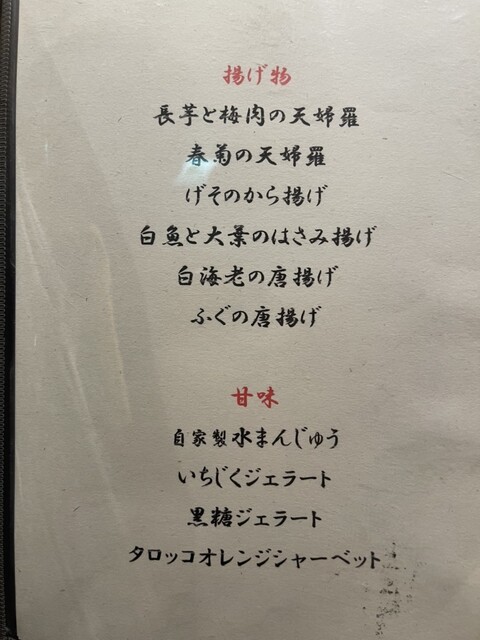 揚げ物
長芋と梅肉の天婦羅
春菊の天婦羅
げそのから揚げ
白魚と大葉のはさみ揚げ
白海老の唐揚げ
ふぐの唐揚げ
甘味
自家製水まんじゅう
いちじくジェラート
黒糖ジェラート
タロッコオレンジシャーベット